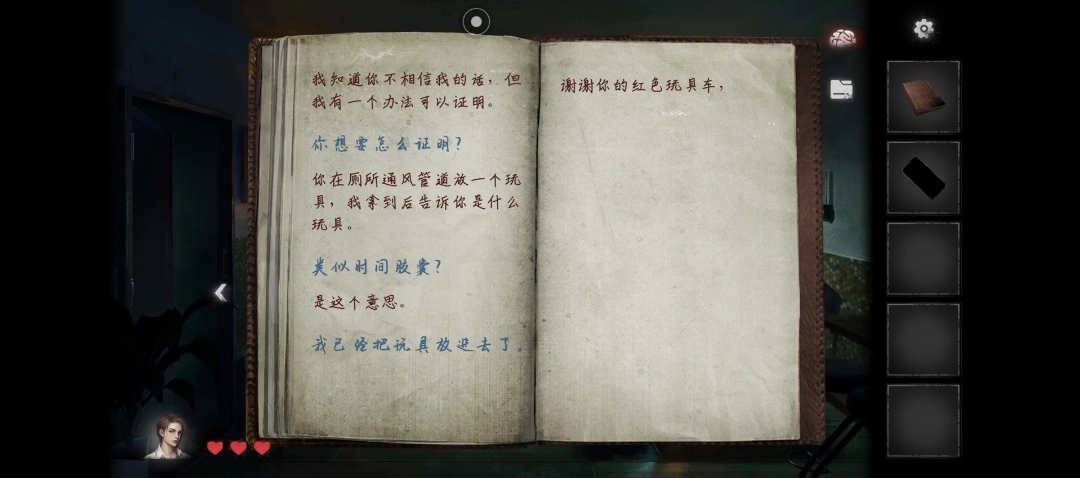 我知道你不相信我的话，但
我有一个办法可以证明。
你想要怎么证明？
你在厕所通风管道放一个玩
具，我拿到后告诉你是什么
玩具。
类似时间胶囊？
是这个意思。
我已经把玩具放进去了。
谢谢你的红色玩具车，